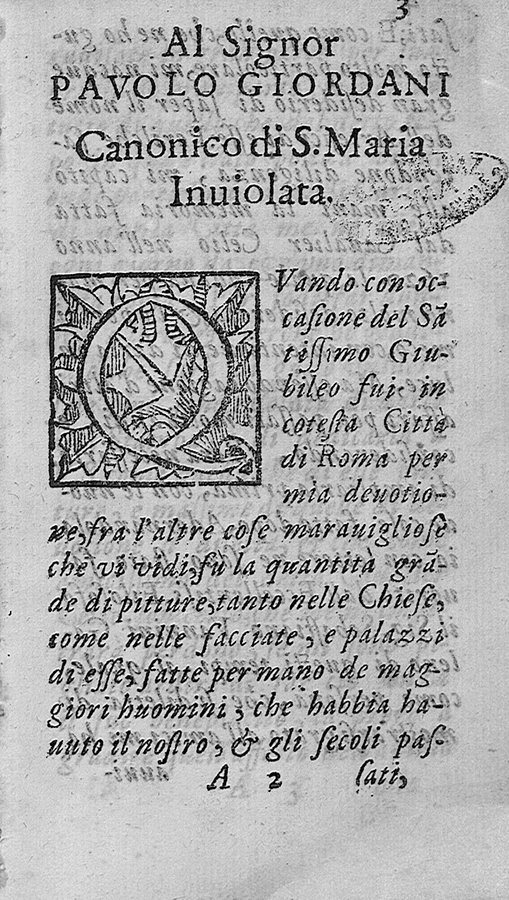 3
Al Signor
PAVOLO GIORDANI
Canonico di S. Maria
Inuiolata.
QVando con oc-
caſione del Sã
tiſſimo Giu-
bileo fui, in
cotesta Città
di Roma per
mia deuotio-
ne, fra l'altre coſe marauiglioſe
che vi vidi, fù la quantità grã-
de di pitture, tanto nelle Chieſe,
come nelle facciate, e palazzi
di eſſe, fatte per mano de mag-
giori huomini, che habbia ha-
uuto il noſtro, & gli ſecoli paſ-
A 2 ſati,